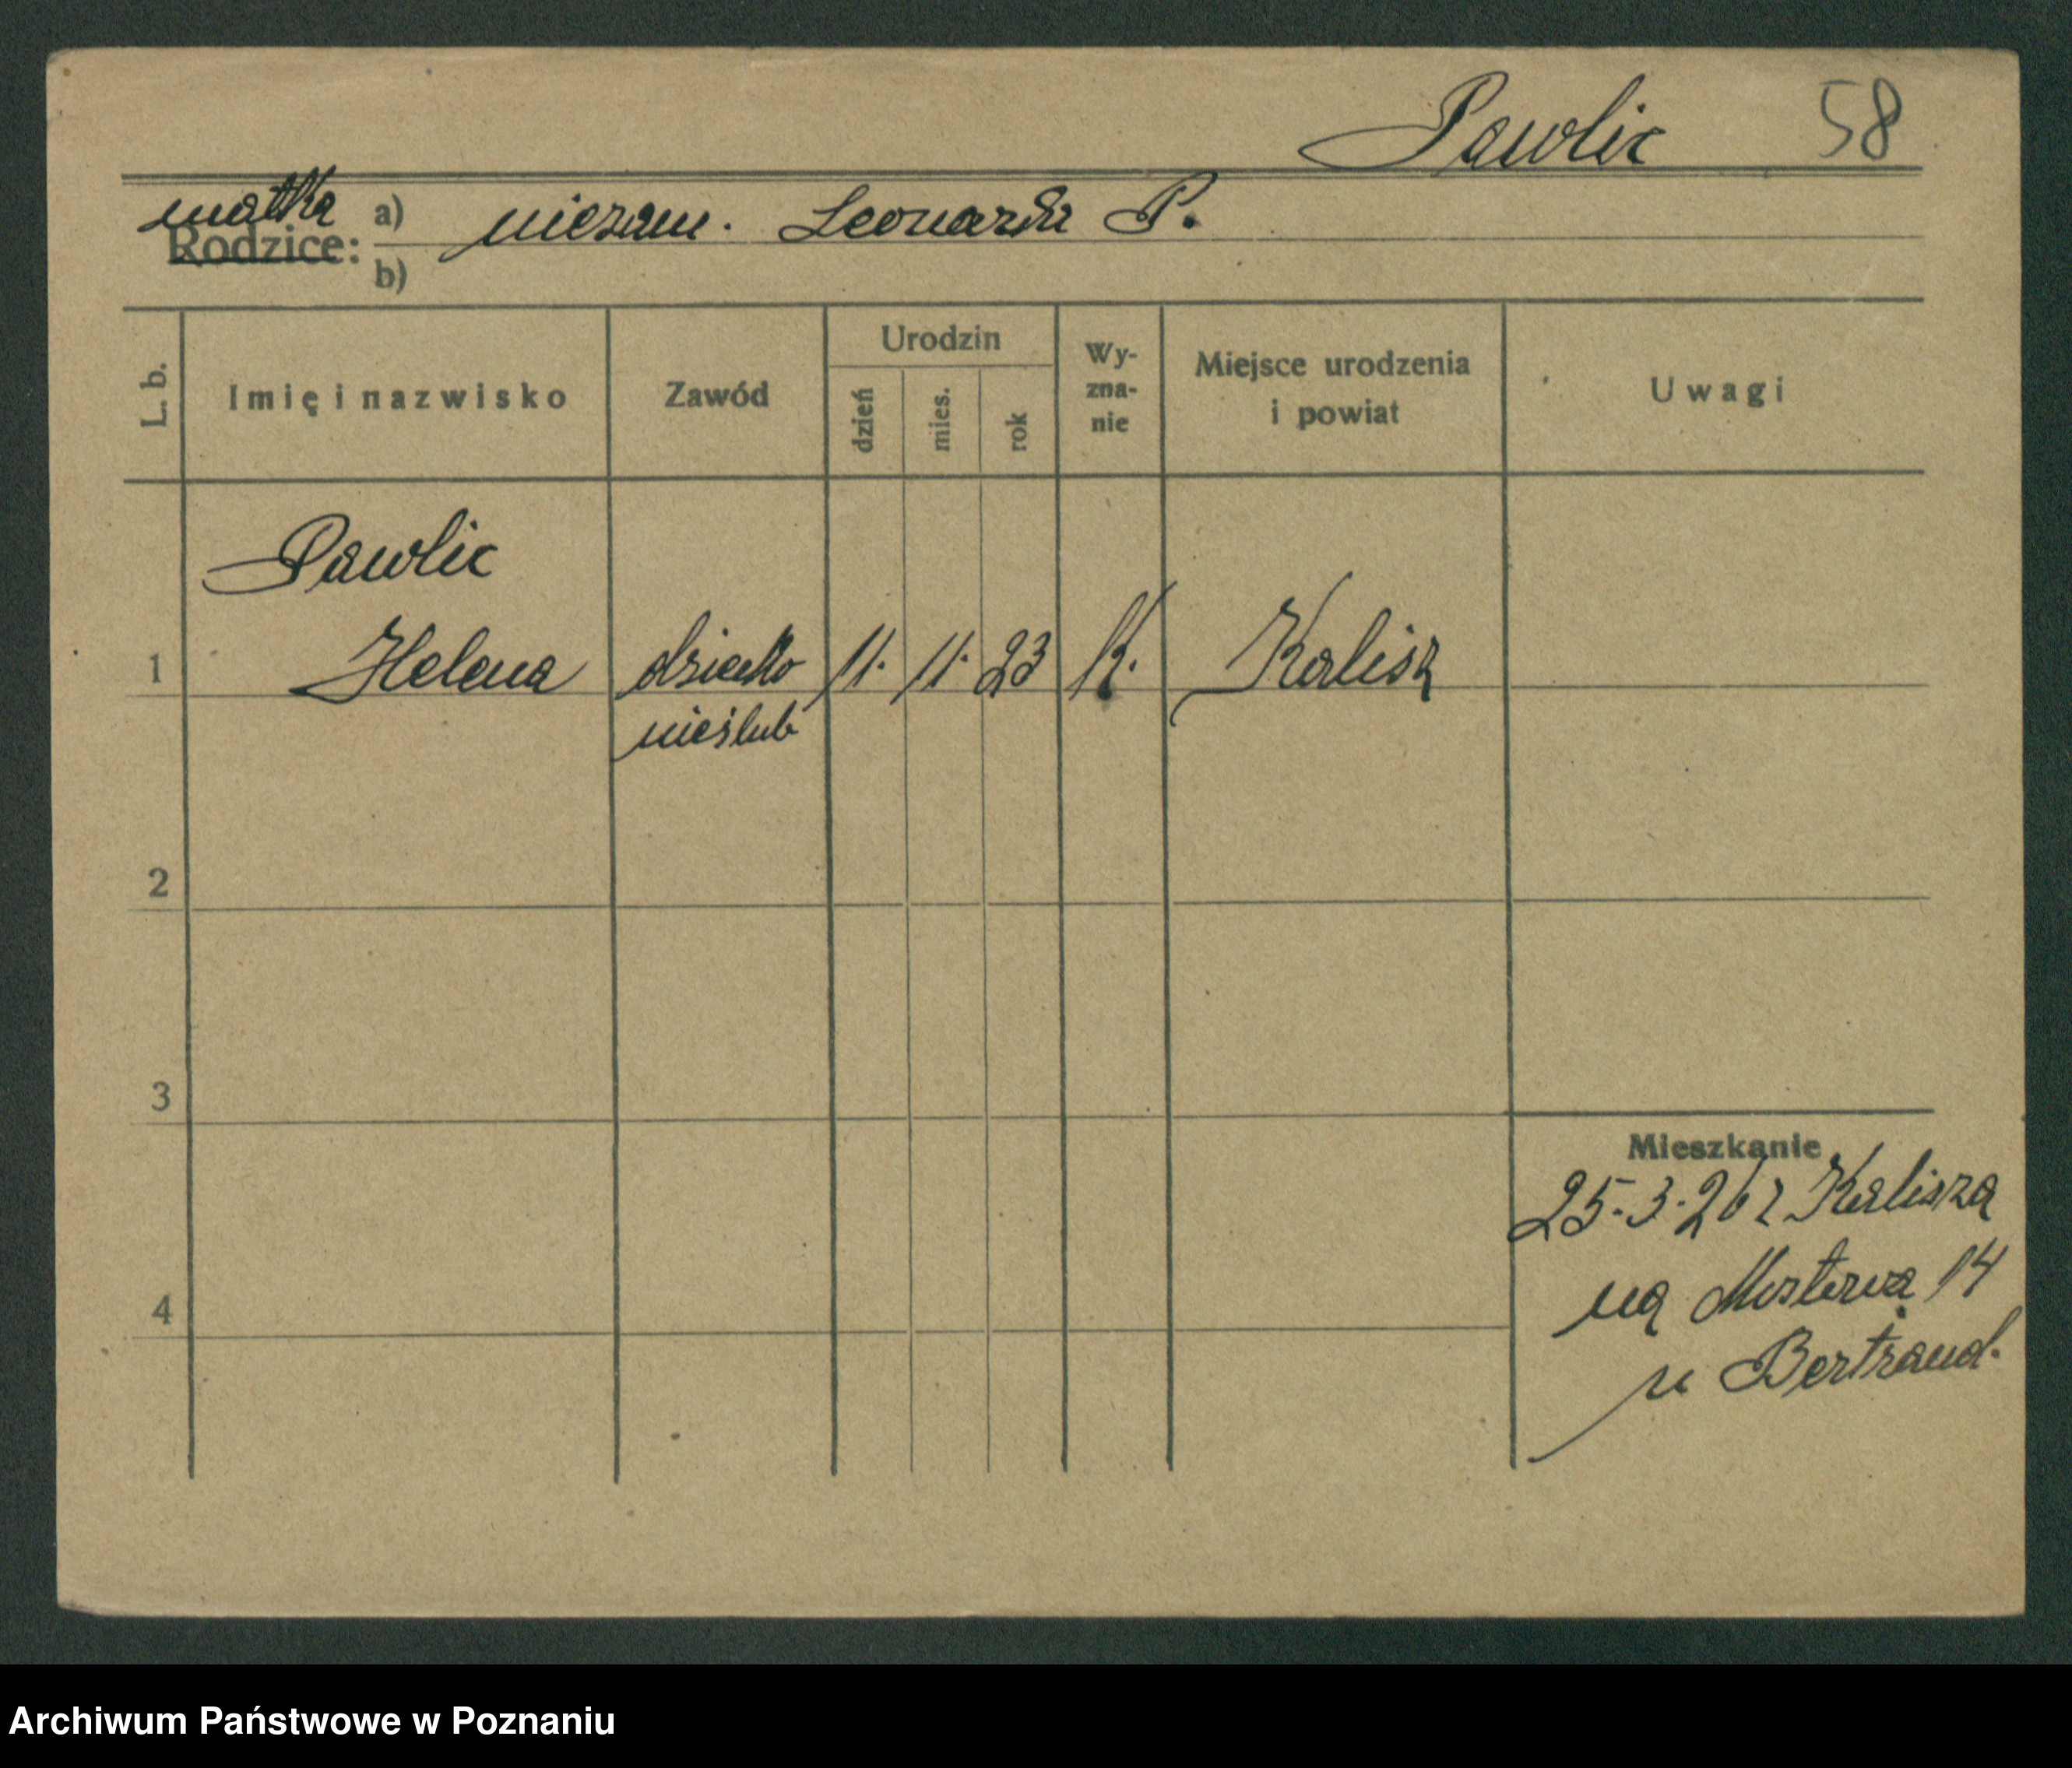 Pawlic 58
matka
Rodzice: a) niezam. Leonarda P.
b)
L. b. Imię i nazwisko Zawód Urodzin dzień mies. rok Wy-zna-nie Miejsce urodzenia i powiat Uwagi
Pawlic
1 Helena dziecko 11. 11. 23 K. Kalisz
nieślub
2
3
Mieszkanie
25.3.26 z Kalisza
4 na Mostowa 14
u Bertrand.
Archiwum Państwowe w Poznaniu